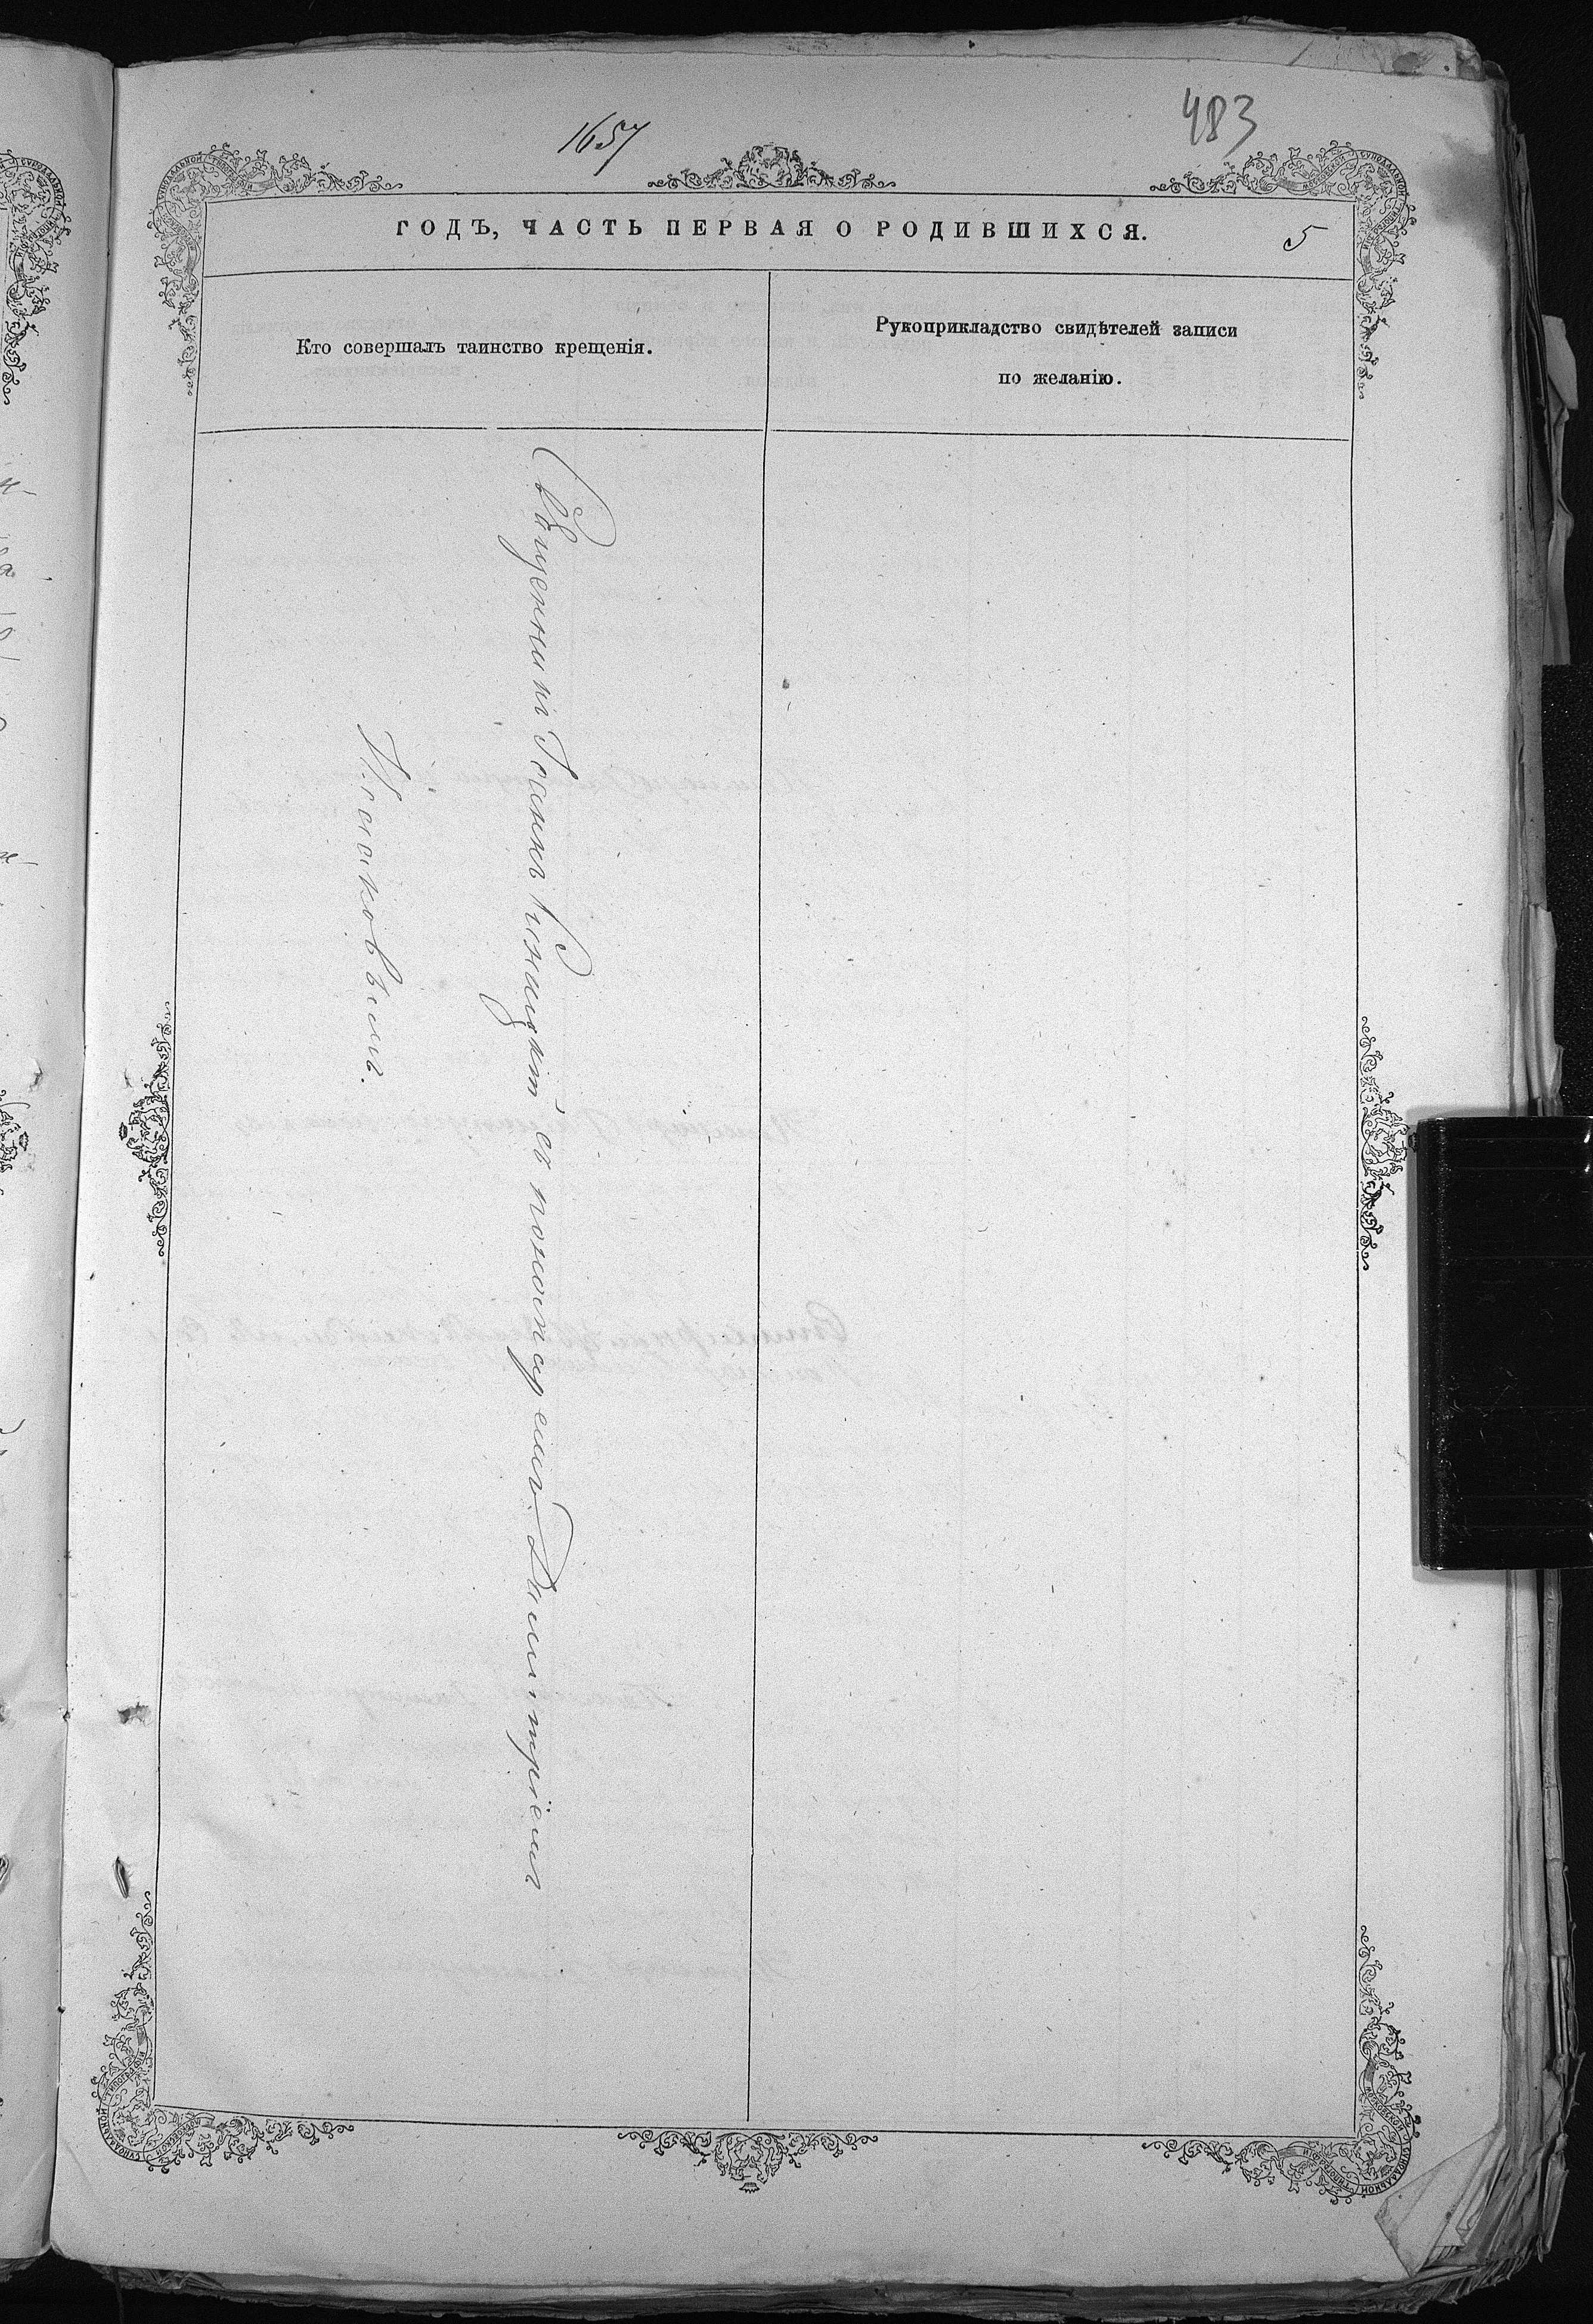 1657
483
ГОДЪ, ЧАСТЬ ПЕРВАЯ О РОДИВШИХСЯ.
5
Кто совершалъ таинство крещенія.
Рукоприкладство свидѣтелей записи
по желанію.
Священникъ Іоаннъ съ пономаремъ Димитріемъ
Исаковымъ.